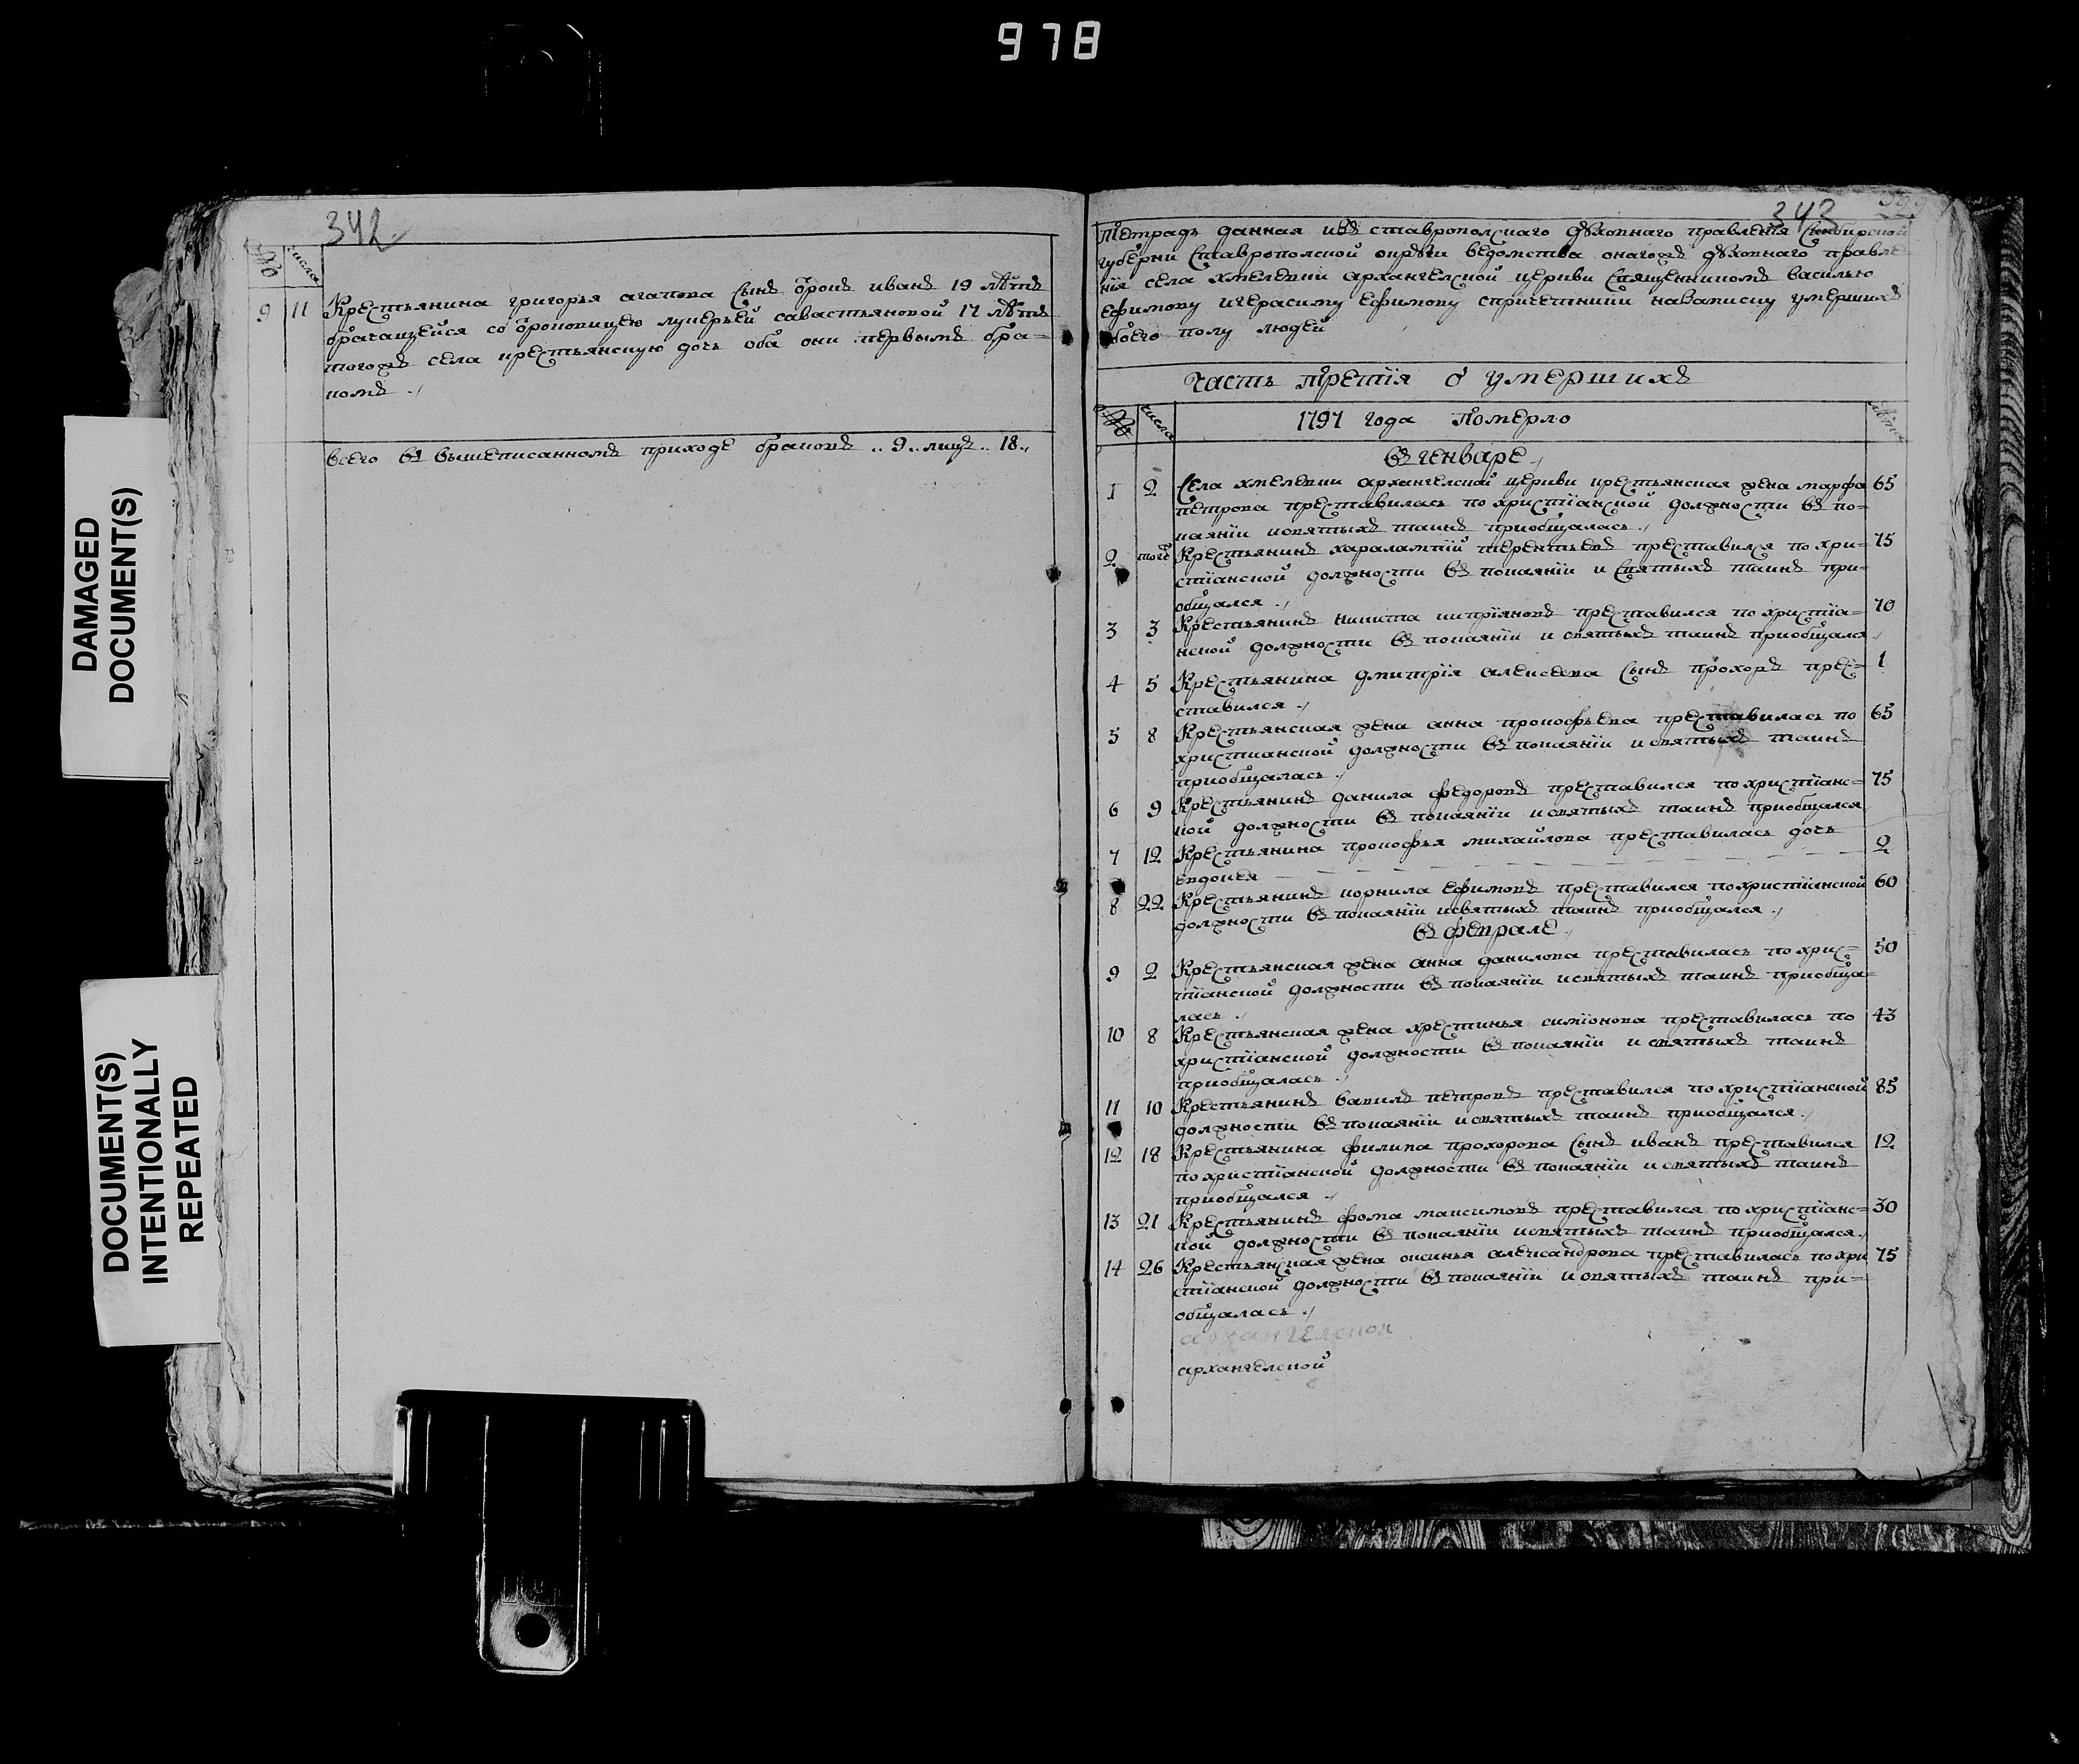 978
DAMAGED
DOCUMENT(S)
DOCUMENT(S)
INTENTIONALLY
REPEATED
342
№ числа
9 11 Крестьянина григорья агапова сынъ отрокъ иванъ 19 лѣтъ
сосѣда
тогожъ села крестьянскую дочь оба они первымъ бра=
комъ
всего въ вышеписанномъ приходе браковъ .. 9 .. лицъ .. 18 .,
343
Тетрадь данная изъ ставрополскаго духовнаго правления Синбирской
губерни Ставрополской округи ведомства онагожъ духовнаго правле
нія села хмелевки архангелской церкви священникомъ василью
Ефимову игерасиму Ефимову спричетники назаписку умершихъ
обоего полу людей
Часть третія о умершихъ
№ числа 1797 года Померло лѣта
въ генваре .,
1 2 Села хмелевки архангелской церкви крестьянская жена марфа 65
петрова преставилась по христіанской должности въ по=
каяніи исвятыхъ таинъ приобщалась .,
2 тогож Крестьянинъ харалампій терентьевъ преставился по хри= 75
стіанской должности въ покаяніи и святыхъ таинъ при=
общался .,
3 3 Крестьянинъ никита китріяновъ преставился по христіа= 70
нской должности въ покаяніи и святыхъ таинъ приобщался .,
4 5 Крестьянина дмитрія алексеева сынъ прохоръ прес= 1
ставился .,
5 8 Крестьянская жена анна прокофьева преставилась по 65
христианской должности въ покаяніи и святыхъ таинъ
приобщалась .,
6 9 Крестьянинъ данила федоровъ преставился по христіанс= 75
кой должности въ покаяніи исвятыхъ таинъ приобщался
7 12 Крестьянина прокофья михайлова преставилась дочь 2
евдокея
8 22 Крестьянинъ корнила Ефимовъ преставился по христіанской 60
должности въ покаяніи исвятыхъ таинъ приобщался .,
въ феврале .,
9 2 Крестьянская жена анна данилова преставилась по хрис= 50
тіанской должности въ покаяніи исвятыхъ таинъ приобща=
лась .,
10 8 Крестьянская жена хрестинья симіонова преставилась по 43
христіанской должности въ покаяніи и святыхъ таинъ
приобщалась .,
11 10 Крестьянинъ вавилъ петровъ преставился по христіанской 85
должности въ покаяніи исвятыхъ таинъ приобщался .,
12 18 Крестьянина филипа прохорова сынъ иванъ преставился 12
по христіанской должности въ покаяніи и святыхъ таинъ
приобщался .,
13 21 Крестьянинъ фома максимовъ преставился по христіанс= 30
кой должности въ покаяніи исвятыхъ таинъ приобщался .,
14 26 Крестьянская жена оксинья александрова преставилась по хри 75
стіанской должности въ покаяніи и святыхъ таинъ при=
общалась .,
архангелской
архангелской